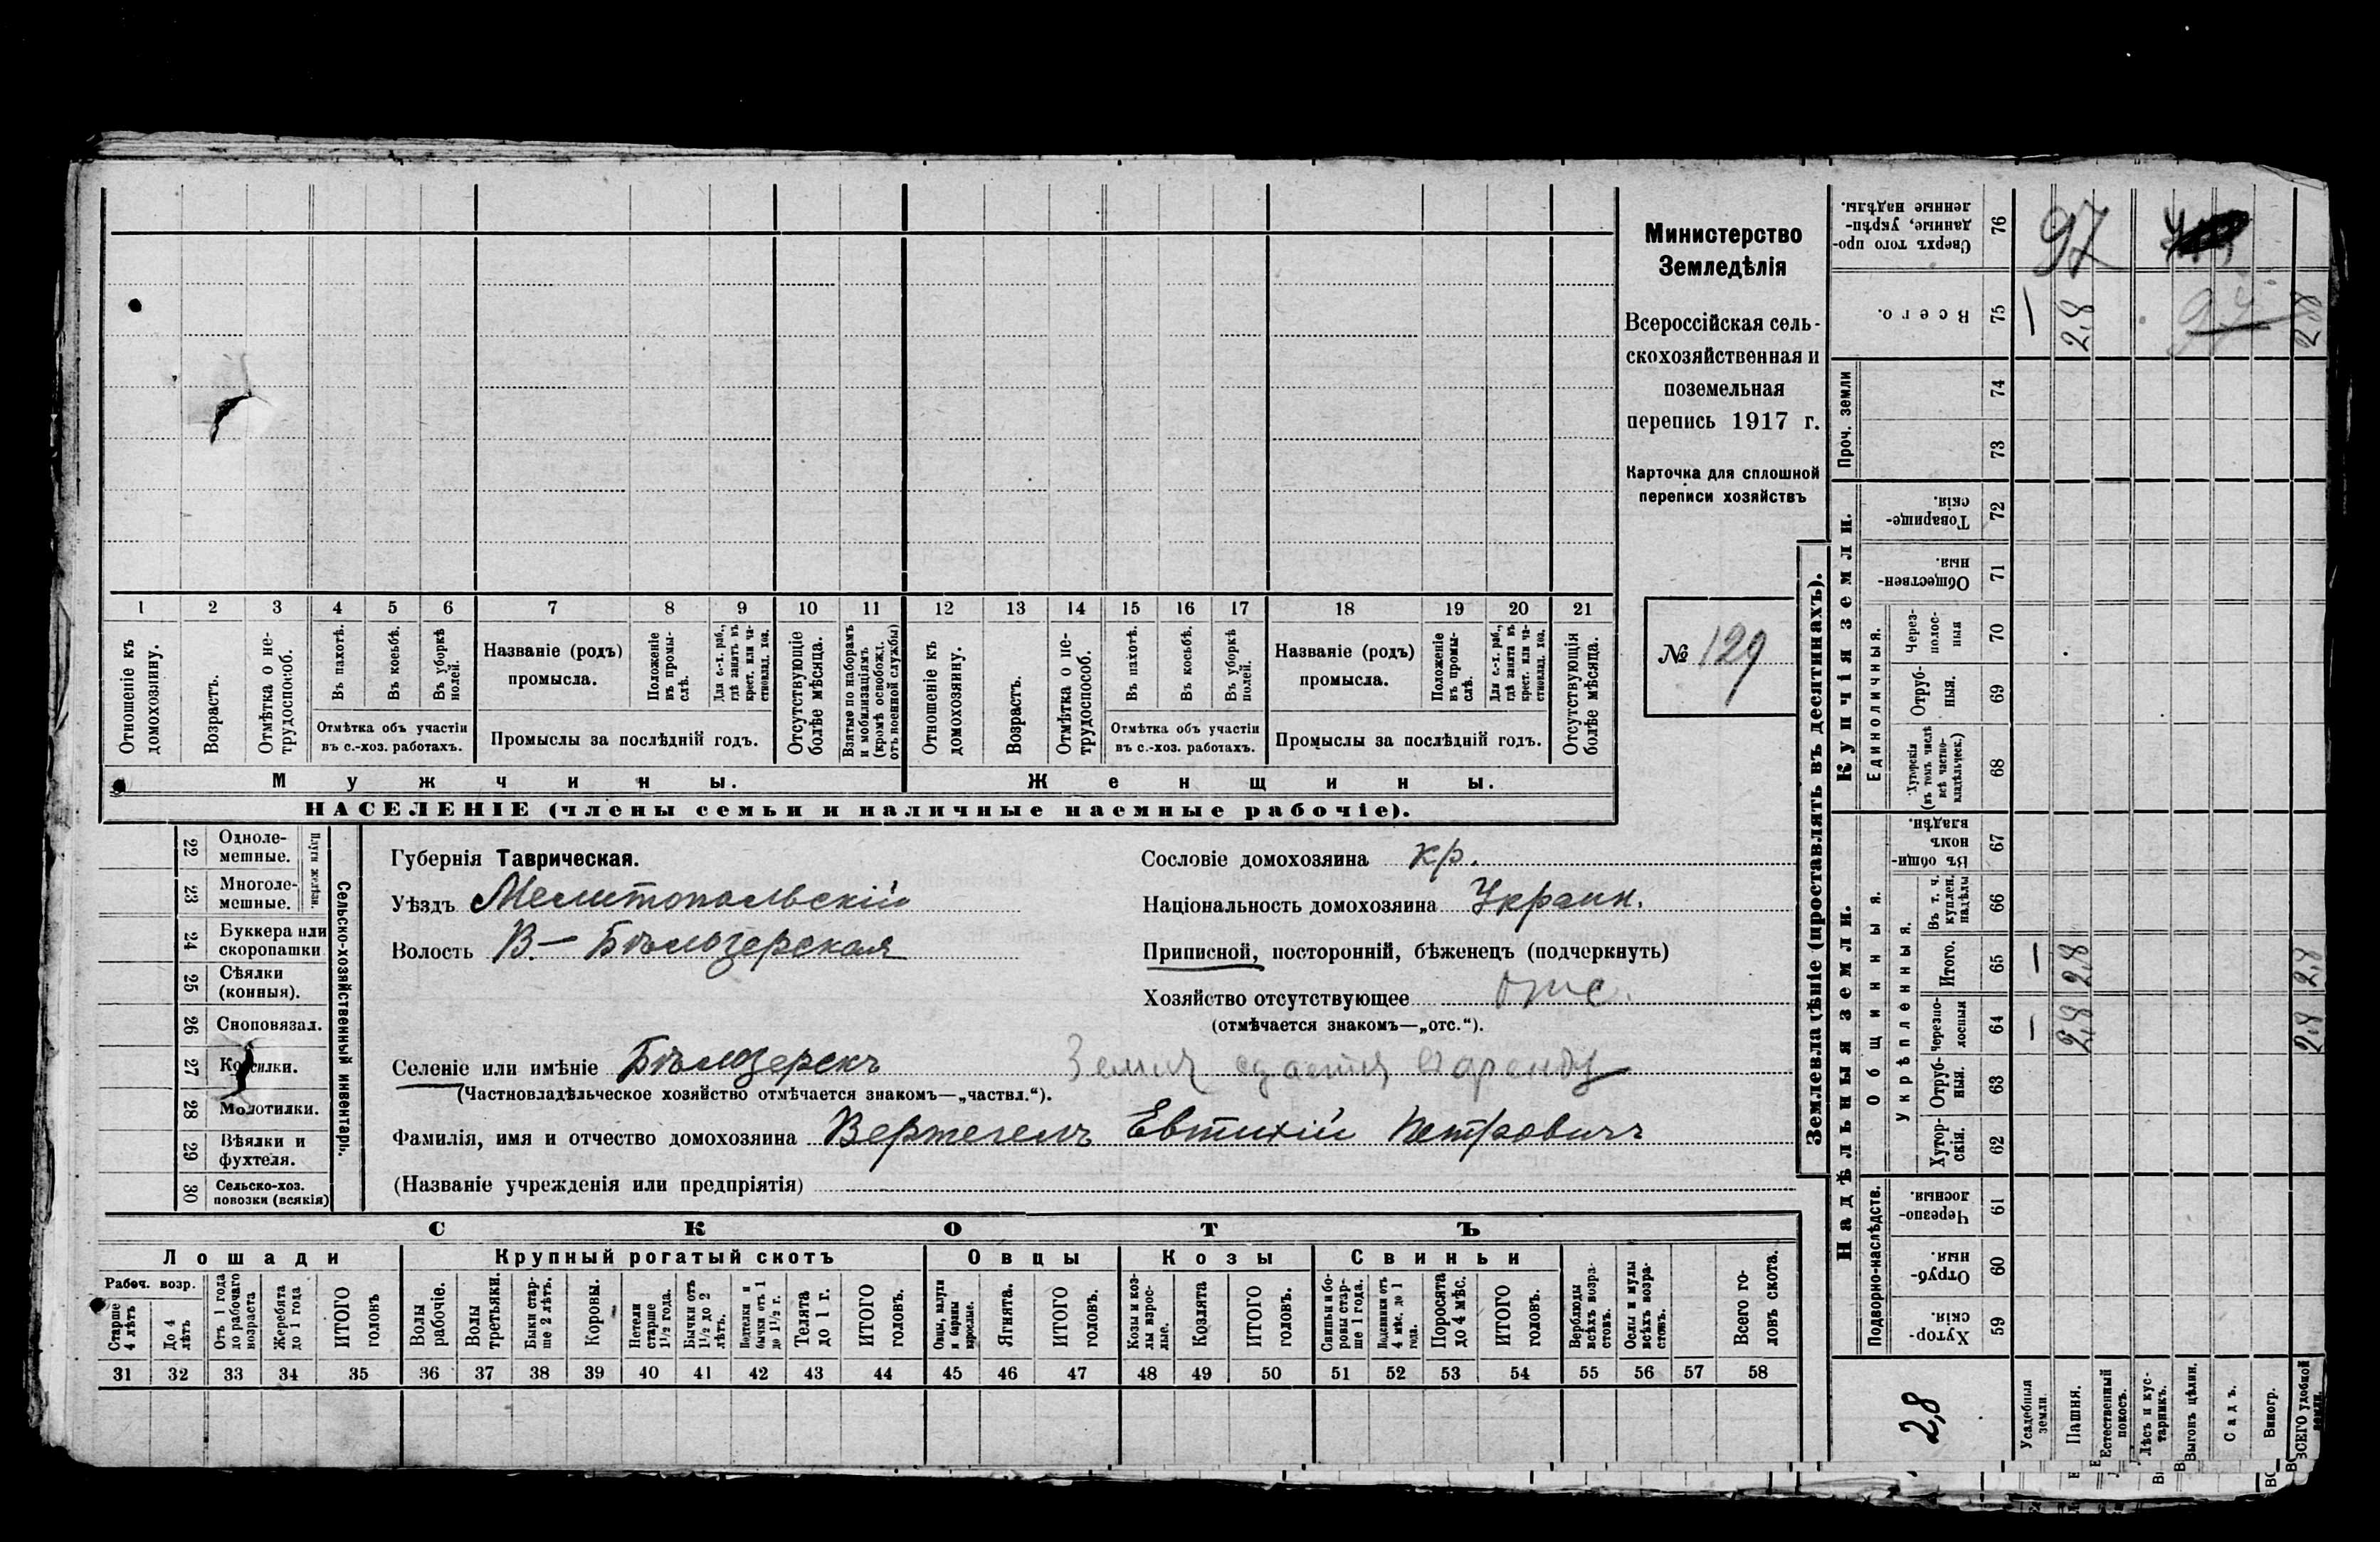 Министерство
Земледѣлія
Всероссійская сель-
скохозяйственная и
поземельная
перепись 1917 г.
Карточка для сплошной
переписи хозяйствъ
№ 129
1 2 3 4 5 6 7 8 9 10 11 12 13 14 15 16 17 18 19 20 21
Отношеніе къ домохозяину.
Возрастъ.
Отмѣтка о не-трудоспособ.
Въ пахотѣ.
Въ косьбѣ.
Въ уборкѣ полей.
Отмѣтка объ участіи
въ с.-хоз. работахъ.
Названіе (родъ)
промысла.
Положеніе въ промы-слѣ.
Для с.-х. раб., гдѣ занятъ въ крест. или ча-стновлад. хоз.
Промыслы за послѣдній годъ.
Отсутствующіе болѣе мѣсяца.
Взятые по наборамъ и мобилизаціямъ (кромѣ освобожд. отъ военной службы)
Отношеніе къ домохозяину.
Возрастъ.
Отмѣтка о не-трудоспособ.
Въ пахотѣ.
Въ косьбѣ.
Въ уборкѣ полей.
Отмѣтка объ участіи
въ с.-хоз. работахъ.
Названіе (родъ)
промысла.
Положеніе въ промы-слѣ.
Для с.-х. раб., гдѣ занята въ крест. или ча-стновлад. хоз.
Промыслы за послѣдній годъ.
Отсутствующія болѣе мѣсяца.
Мужчины.
Женщины.
НАСЕЛЕНІЕ (члены семьи и наличные наемные рабочіе).
22 Одноле-мешные.
23 Многоле-мешные.
Плуги желѣзн.
24 Буккера или скоропашки
25 Сѣялки (конныя).
26 Сноповязал.
27 Косилки.
28 Молотилки.
29 Вѣялки и фухтеля.
30 Сельско-хоз. повозки (всякія)
Сельско-хозяйственный инвентарь.
Губернія Таврическая.
Уѣздъ Мелитопольскій
Волость В.-Бѣлозерская
Сословіе домохозяина кр.
Національность домохозяина Украин.
Приписной, посторонній, бѣженецъ (подчеркнуть)
Хозяйство отсутствующее отс.
(отмѣчается знакомъ—„отс.“).
Селеніе или имѣніе Бѣлозерскъ Земля сдается в аренду
(Частновладѣльческое хозяйство отмѣчается знакомъ—„частвл.“).
Фамилія, имя и отчество домохозяина Вертегелъ Евтихій Петровичъ
(Названіе учрежденія или предпріятія)
СКОТЪ
Лошади
Крупный рогатый скотъ
Овцы
Козы
Свиньи
Рабоч. возр.
Старше 4 лѣтъ
До 4 лѣтъ
Отъ 1 года до рабочаго возраста
Жеребята до 1 года
ИТОГО головъ
Волы рабочіе.
Волы третьяки.
Быки стар-ше 2 лѣтъ.
Коровы.
Нетели старше 1½ года.
Бычки отъ 1½ до 2 лѣтъ.
Нетели и бычки отъ 1 до 1½ г.
Телята до 1 г.
ИТОГО головъ.
Овцы, валухи и бараны взрослые.
Ягнята.
ИТОГО головъ.
Козы и коз-лы взрос-лые.
Козлята
ИТОГО головъ.
Свиньи и бо-ровы стар-ше 1 года.
Подсвинки отъ 4 мѣс. до 1 года.
Поросята до 4 мѣс.
ИТОГО головъ.
Верблюды всѣхъ возра-стовъ.
Ослы и мулы всѣхъ возра-стовъ.
Всего го-ловъ скота.
31 32 33 34 35 36 37 38 39 40 41 42 43 44 45 46 47 48 49 50 51 52 53 54 55 56 57 58
Землевладѣніе (проставлять въ десятинахъ).
Надѣльныя земли.
Купчія земли.
Проч. земли
Подворно-наслѣдств.
Общинныя.
Укрѣпленныя.
Единоличныя.
Хутор-скія. 59
Отруб-ныя. 60
Черезпо-лосныя. 61
Хутор-скія. 62
Отруб-ныя. 63
Черезпо-лосныя 64 — 2,8 2,8
Итого. 65 — 2,8 2,8
Въ т. ч. куплен. надѣлы 66
Въ общи-номъ владѣн. 67
Хуторскія (въ томъ числѣ всѣ частно-владѣльческ.) 68
Отруб-ныя. 69
Через-полос-ныя 70
Обществен-ныя. 71
Товарище-скія. 72
73
74
Всего. 75 — 2,8 97 2,8
Сверхъ того про-данные, укрѣп-ленные надѣлы. 76 97
2,8
Усадебныя земли.
Пашня.
Естественный покосъ.
Лѣсъ и кус-тарникъ.
Выгонъ цѣлин.
Садъ.
Виногр.
ВСЕГО удобной земли.